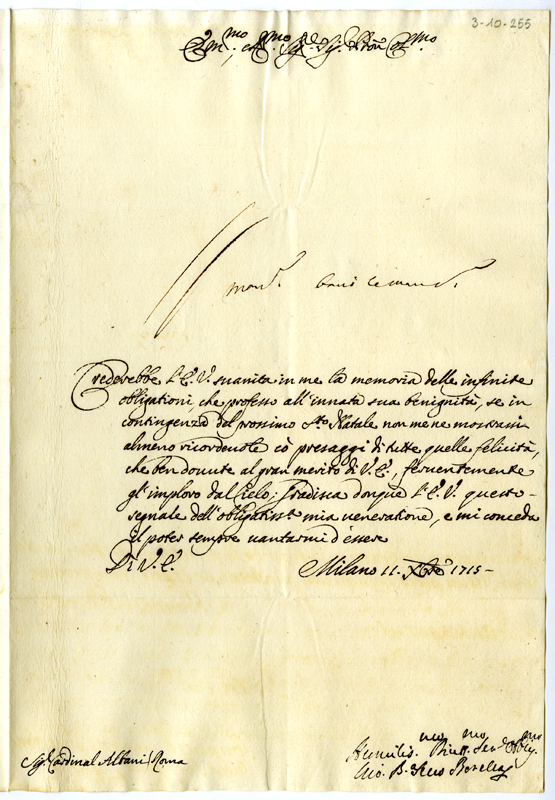 3-10-255
Em.mo, e R.mo Sig.r Sig.r Pron Col.mo
Crederebbe l'E. V. suanita in me la memoria delle infinite
obligationi, che professo all'innata sua benignità, se in
contingenza del prossimo S.to Natale non me ne mostrassi
almeno ricordeuole cò presaggi di tutte quelle felicità,
che ben douute al gran merito di V. E., feruentemente
gl'imploro dal Cielo; Gradisca donque l'E. V. questo
segnale dell'obligatiss.a mia ueneratione, e mi conceda
il poter sempre uantarmi d'essere
Di V. E.
Milano 11. Xbre 1715
Sig.r Cardinal Albani / Roma
Humiliss.mo Diuot.mo Ser.r Oblig.mo
Gio. B.